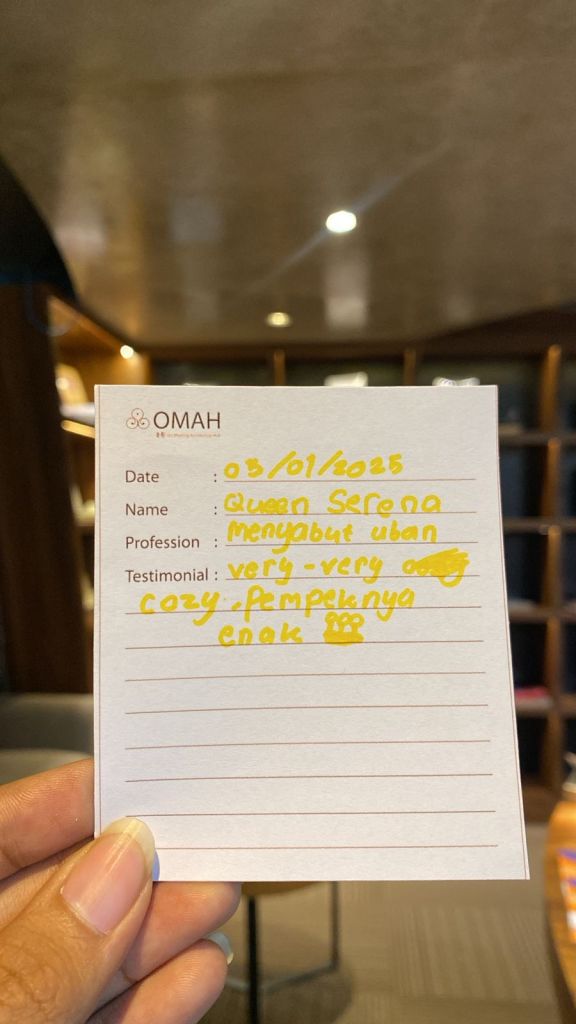 OMAH
Date : 03/01/2025
Name : Queen Serena
Profession : menyabut uban
Testimonial : very-very
cozy, Pempeknya
enak